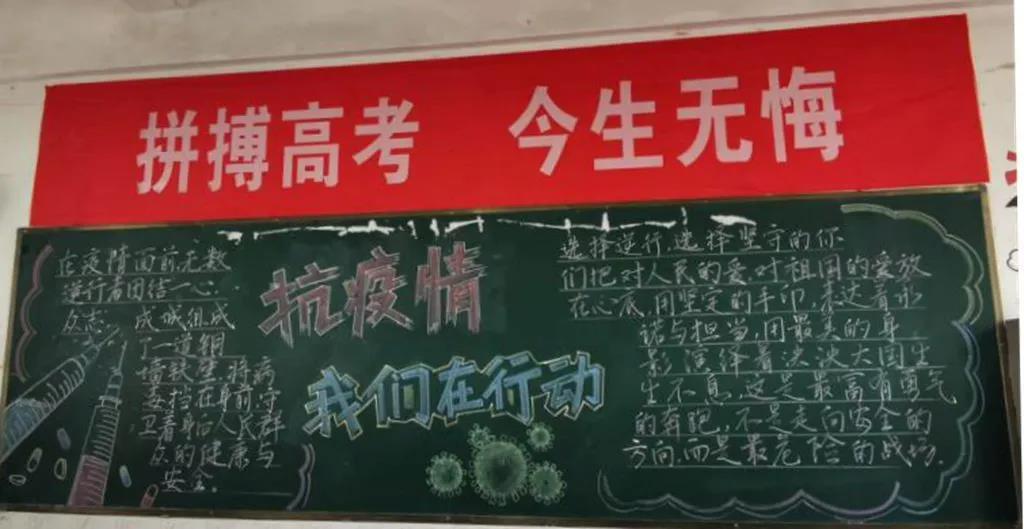 拼搏高考 今生无悔
在疫情面前无数
逆行者团结一心
众志 成城组成
了一道铜
墙铁壁,将病
毒挡在身前守
卫着身后人民群
众的健康与
安全。
抗疫情
我们在行动
选择逆行,选择坚守的你
们把对人民的爱,对祖国的爱放
在心底,用坚定的手印,表达着承
诺与担当,用最美的身
影,演绎着泱泱大国生
生不息,这是最富有勇气
的奔跑,不是走向安全的
方向,而是最危险的战场.